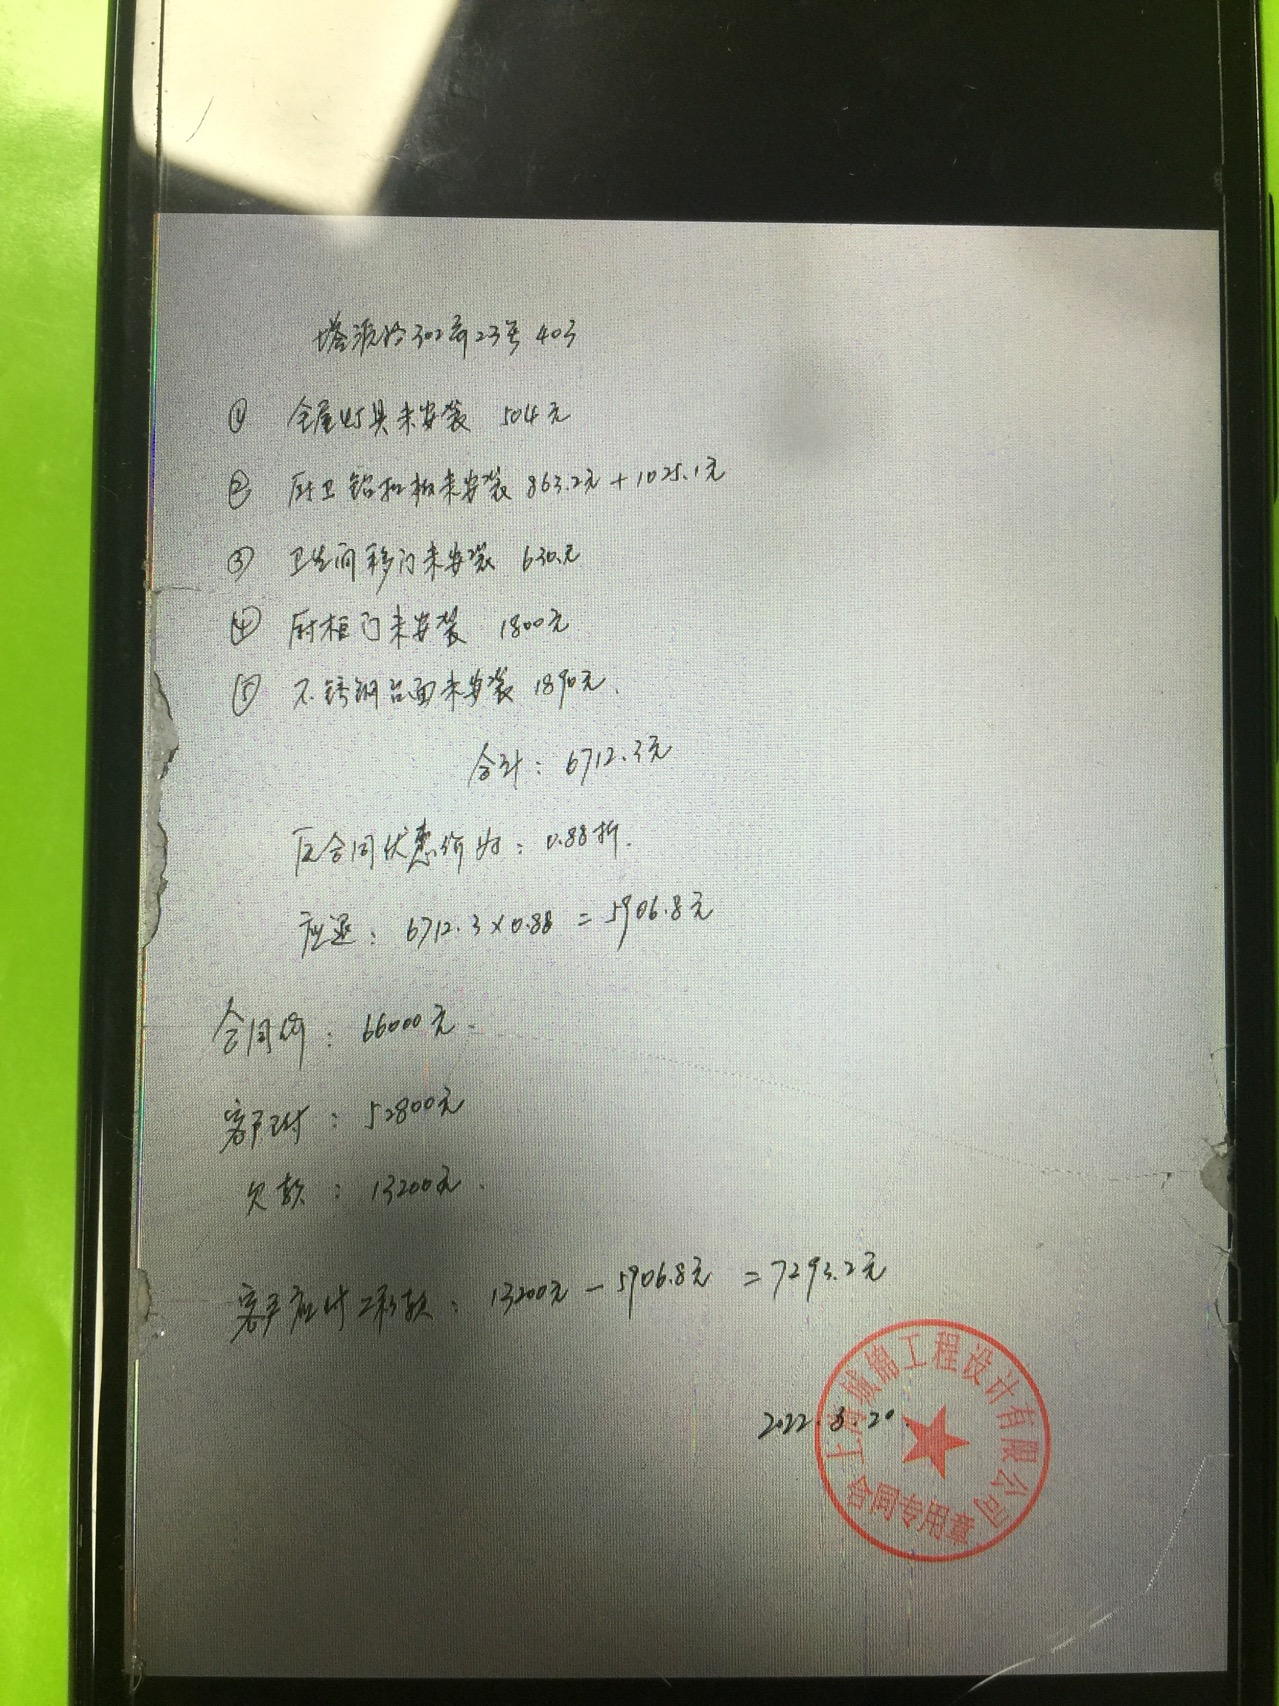 塔源路302弄23号403
① 全屋灯具未安装 504元
② 厨卫铝扣板未安装 863.2元+1025.1元
③ 卫生间移门未安装 630元
④ 厨柜门未安装 1800元
⑤ 不锈钢台面未安装 1890元.
合计: 6712.3元
合同优惠价为: 0.88折.
应退: 6712.3×0.88=5906.8元
合同价: 66000元.
客户已付: 52800元
欠款: 13200元.
客户应付工程款: 13200元-5906.8元=7293.2元
2022.6.20.
上海城锦工程设计有限公司
合同专用章